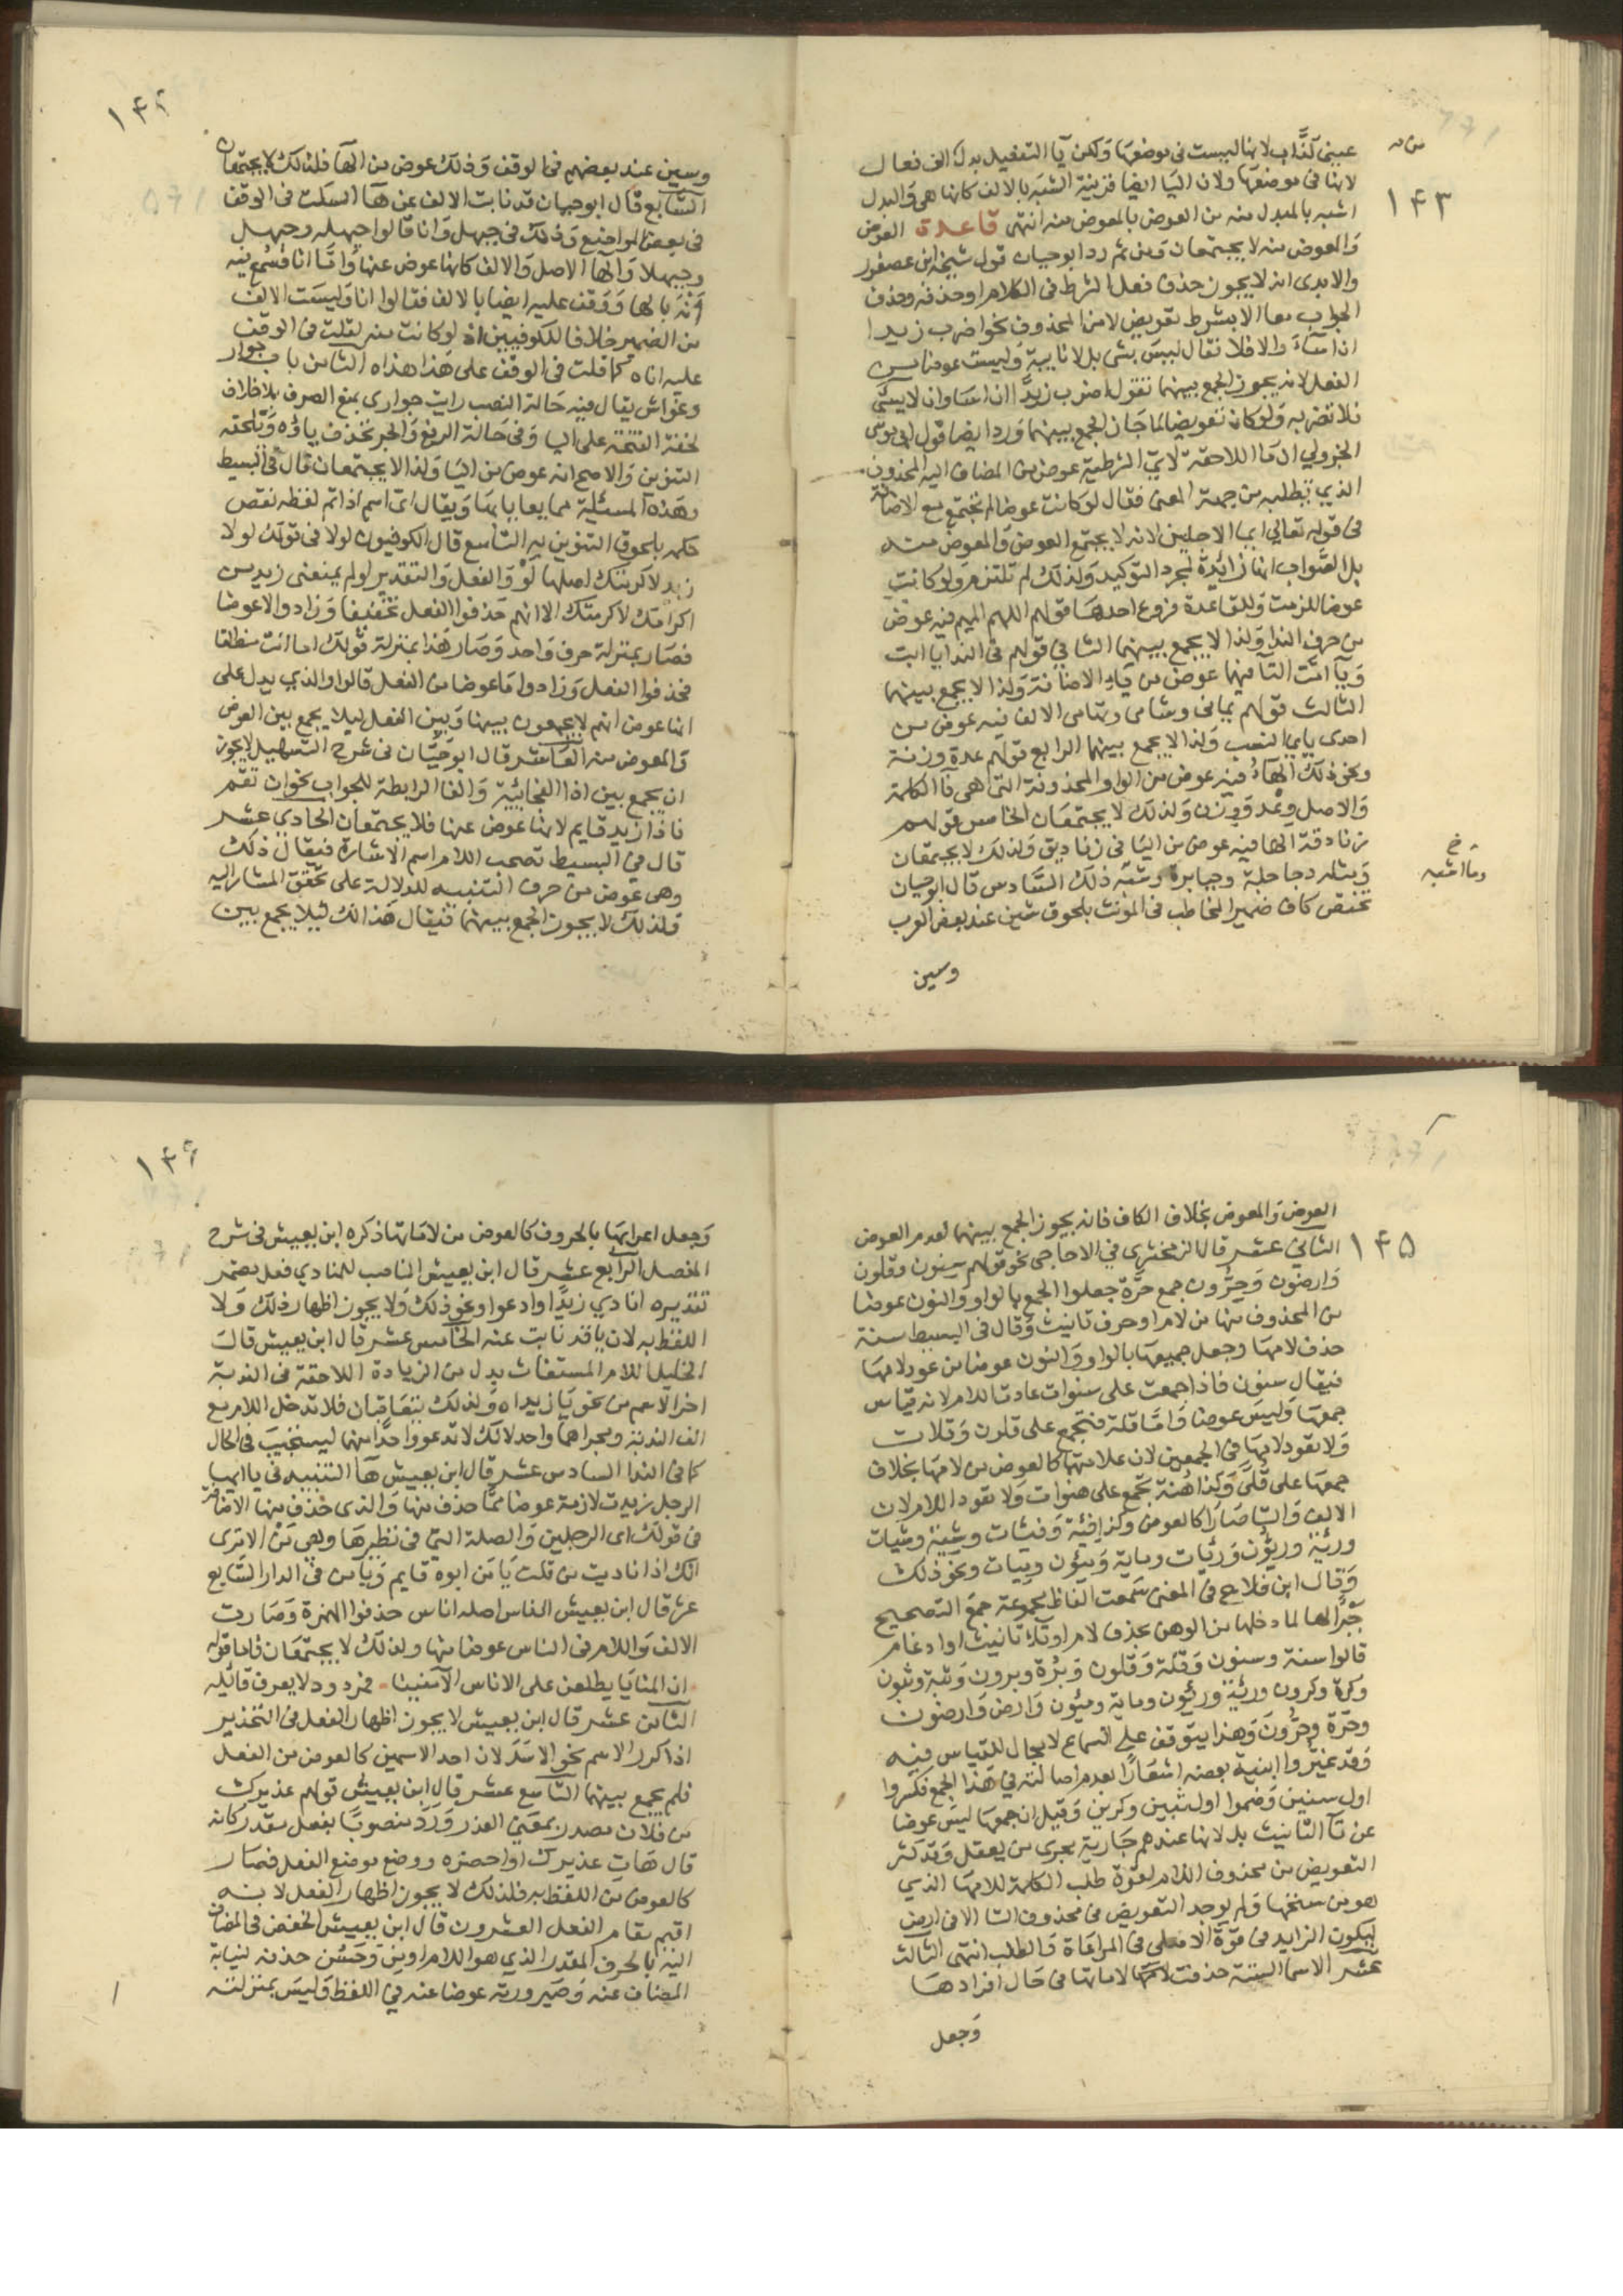 ١٤٣
عيني كذاب لانها ليست في موضعها ولكن يا التفعيل بدل الف فعال
لانها في موضعها ولان اليا ايضا قرينة الشبه بالالف كانها هي والبدل
اشبه بالمبدل منه من العوض بالمعوض منه انتهى قاعدة العوض
والمعوض منه لا يجتمعان ومن ثم رد ابو حيان قول شيخه ابن عصفور
والابدي انه لا يجوز حذف فعل الشرط في الكلام او حذفه وحذف
الجواب معا الا بشرط تعويض لا من المحذوف نحو اضرب زيدا
ان اساء والا فلا فقال ليس بشى بل لا نايبة وليست عوضا من
الفعل لانه يجوز الجمع بينهما تقول اضرب زيدا ان اسا وان لا يسئ
فلا تضربه ولو كان تعويضا لما جاز الجمع بينهما ورد ايضا قول ابي موسى
الجزولي ان ما اللاحقة لاي الشرطية عوض من المضاف اليه المحذوف
الذي تطلبه من جهة المعنى فقال لو كانت عوضا لم تجتمع مع الاضافة
في قوله تعالى ايما الاجلين لانه لا يجتمع العوض والمعوض منه
بل الصواب انها زائدة لمجرد التوكيد ولذلك لم تلتزم ولو كانت
عوضا للزمت وللقاعدة فروع احدها قولهم اللهم الميم فيه عوض
من حرف الندا ولذا لا يجمع بينهما الثاني قولهم في الندا يا ابت
ويا امت التا فيهما عوض من ياء الاضافة ولذا لا يجمع بينهما
الثالث قولهم يماني وشامي وتهامي الالف فيه عوض من
احدى يايي النسب ولذا لا يجمع بينهما الرابع قولهم عدة وزنة
ونحو ذلك الهاء فيه عوض من الواو المحذوفة التي هي فا الكلمة
والاصل وعد ووزن ولذلك لا يجتمعان الخامس قولهم
زنادقة الها فيه عوض من اليا في زناديق ولذلك لا يجتمعان
ومثله دجاجلة وجبابرة وشبه ذلك السادس قال ابو حيان
خ
وما اشبه
تختص كاف ضمير المخاطب في المؤنث بلحوق شين عند بعض العرب
وسين
وسين عند بعضهم في الوقف وذلك عوض من الها فلذلك لا يجتمعان
السابع قال ابو حيان قد نابت الالف عن ها السكت في الوقف
في بعض المواضع وذلك في حيهل وانا قالوا حيهله وحيهل
وحيهلا والها الاصل والالف كانها عوض عنها واما انا فسمع فيه
انه بالها ووقف عليه ايضا بالالف فقالوا انا وليست الالف
من الضمير خلافا للكوفيين اذ لو كانت منه لقلت في الوقف
عليه اناه كما قلت في الوقف على هذا هذاه الثامن باب جوار
وغواش يقال فيه حالة النصب رايت جواري بمنع الصرف بلا خلاف
لخفة الفتحة على اليا وفي حالة الرفع والجر تحذف ياؤه ويلحقه
التنوين والاصح انه عوض من اليا ولذا لا يجتمعان قال في البسيط
وهذه المسئلة مما يعايا بها ويقال اي اسم اذا تم لفظه نقص
حكمه بلحوق التنوين به التاسع قال الكوفيون لولا في قولك لولا
زيد لاكرمتك اصلها لو والفعل والتقدير لو لم يمنعني زيد من
اكرامك لاكرمتك الا انهم حذفوا الفعل تخفيفا وزادوا لا عوضا
فصار بمنزلة حرف واحد وصار هذا بمنزلة قولك اما انت منطلقا
فحذفوا الفعل وزادوا ما عوضا من الفعل قالوا والذي يدل على
انها عوض انهم لا يجمعون بينها وبين الفعل ليلا يجمع بين العوض
والمعوض منه العاشر قال ابو حيان في شرح التسهيل لا يجوز
ان يجمع بين اذا الفجائية والفا الرابطة للجواب نحو ان تقم
فاذا زيد قايم لانها عوض عنها فلا يجتمعان الحادي عشر
قال في البسيط تصحب اللام اسم الاشارة فيقال ذلك
وهي عوض من حرف التنبيه للدلالة على تحقق المشار اليه
فلذلك لا يجوز الجمع بينهما فيقال هذالك ليلا يجمع بين
١٤٥
العوض والمعوض بخلاف الكاف فانه يجوز الجمع بينهما لعدم العوض
الثاني عشر قال الزمخشري في الاحاجي نحو قولهم سنون وقلون
وارضون وحرون جمع حرة جعلوا الجمع بالواو والنون عوضا
من المحذوف منها من لام او حرف تانيث وقال في البسيط سنة
حذف لامها وجعل جمعها بالواو والنون عوضا من عود لامها
فيقال سنون فاذا جمعت على سنوات عادت اللام لانه قياس
جمعها وليس عوضا واما قلة فتجمع على قلون وقلات
ولا تعود لامها في الجمعين لان علامتها كالعوض من لامها بخلاف
جمعها على قلى وكذا هنة تجمع على هنوات ولا تعود اللام لان
الالف والتا صارا كالعوض وكذا فئة وفئات وشية وشيات
ورئة ورئون ورئات وماية ومئون ومئات ونحو ذلك
وقال ابن فلاح في المغني سمعت الفاظ مجموعة جمع التصحيح
جبرا لها لما دخلها من الوهن بحذف لام او تاء تانيث او ادغام
قالوا سنة وسنون وقلة وقلون وبرة وبرون وثبة وثبون
وكرة وكرون ورئة ورئون وماية ومئون وارض وارضون
وحرة وحرون وهذا يتوقف على السماع لا مجال للقياس فيه
وقد غيروا ابنية بعضه اشعارا بعدم اصالته في هذا الجمع فكسروا
اول سنين وضموا اول ثبين وكرين وقيل ان جمعها ليس عوضا
عن تا التانيث بل لانها عندهم جارية مجرى من يعقل وقد كثر
التعويض من محذوف اللام لقوة طلب الكلمة للامها الذي
هو من سنخها ولم يوجد التعويض من محذوف التا الا في ارض
ليكون الزايد في قوة الاصلي في المراعاة والطلب انتهى الثالث
عشر الاسما الستة حذفت لاماتها في حال افرادها
وجعل
١٤٦
وجعل اعرابها بالحروف كالعوض من لاماتها ذكره ابن يعيش في شرح
المفصل الرابع عشر قال ابن يعيش الناصب للمنادي فعل مضمر
تقديره انادي زيدا او ادعوا ونحو ذلك ولا يجوز اظهار ذلك ولا
اللفظ به لان يا قد نابت عنه الخامس عشر قال ابن يعيش قال
الخليل اللام المستغاث بدل من الزيادة اللاحقة في الندبة
اخر الاسم من نحو يا زيداه ولذلك يتعاقبان فلا تدخل اللام مع
الف الندبة ومجراهما واحد لانك لا تدعوا واحدا منهما ليستجيب في الحال
كما في الندا السادس عشر قال ابن يعيش ها التنبيه في يا ايها
الرجل زيدت لازمة عوضا مما حذف منها والذي حذف منها الاضافة
في قولك اي الرجلين والصلة التي في نظيرها وهي من الا ترى
انك اذا ناديت من قلت يا من ابوه قايم ويا من في الدار السابع
عشر قال ابن يعيش الناس اصله اناس حذفوا الهمزة وصارت
الالف واللام في الناس عوضا منها ولذلك لا يجتمعان فاما قوله
ان المنايا يطلعن على الاناس الآمنينا فمردود لا يعرف قائله
الثامن عشر قال ابن يعيش لا يجوز اظهار الفعل في التحذير
اذا كرر الاسم نحو الاسد لان احد الاسمين كالعوض من الفعل
فلم يجمع بينهما التاسع عشر قال ابن يعيش قولهم عذيرك
من فلان مصدر بمعنى العذر ورد منصوبا بفعل مقدر كانه
قال هات عذيرك او احضره ووضع موضع الفعل فصار
كالعوض من اللفظ به فلذلك لا يجوز اظهار الفعل لانه
اقيم مقام الفعل العشرون قال ابن يعيش الخفض في المضاف
اليه بالحرف المقدر الذي هو اللام او من وحسن حذفه لنيابة
المضاف عنه وصيرورته عوضا عنه في اللفظ وليس بمنزلته